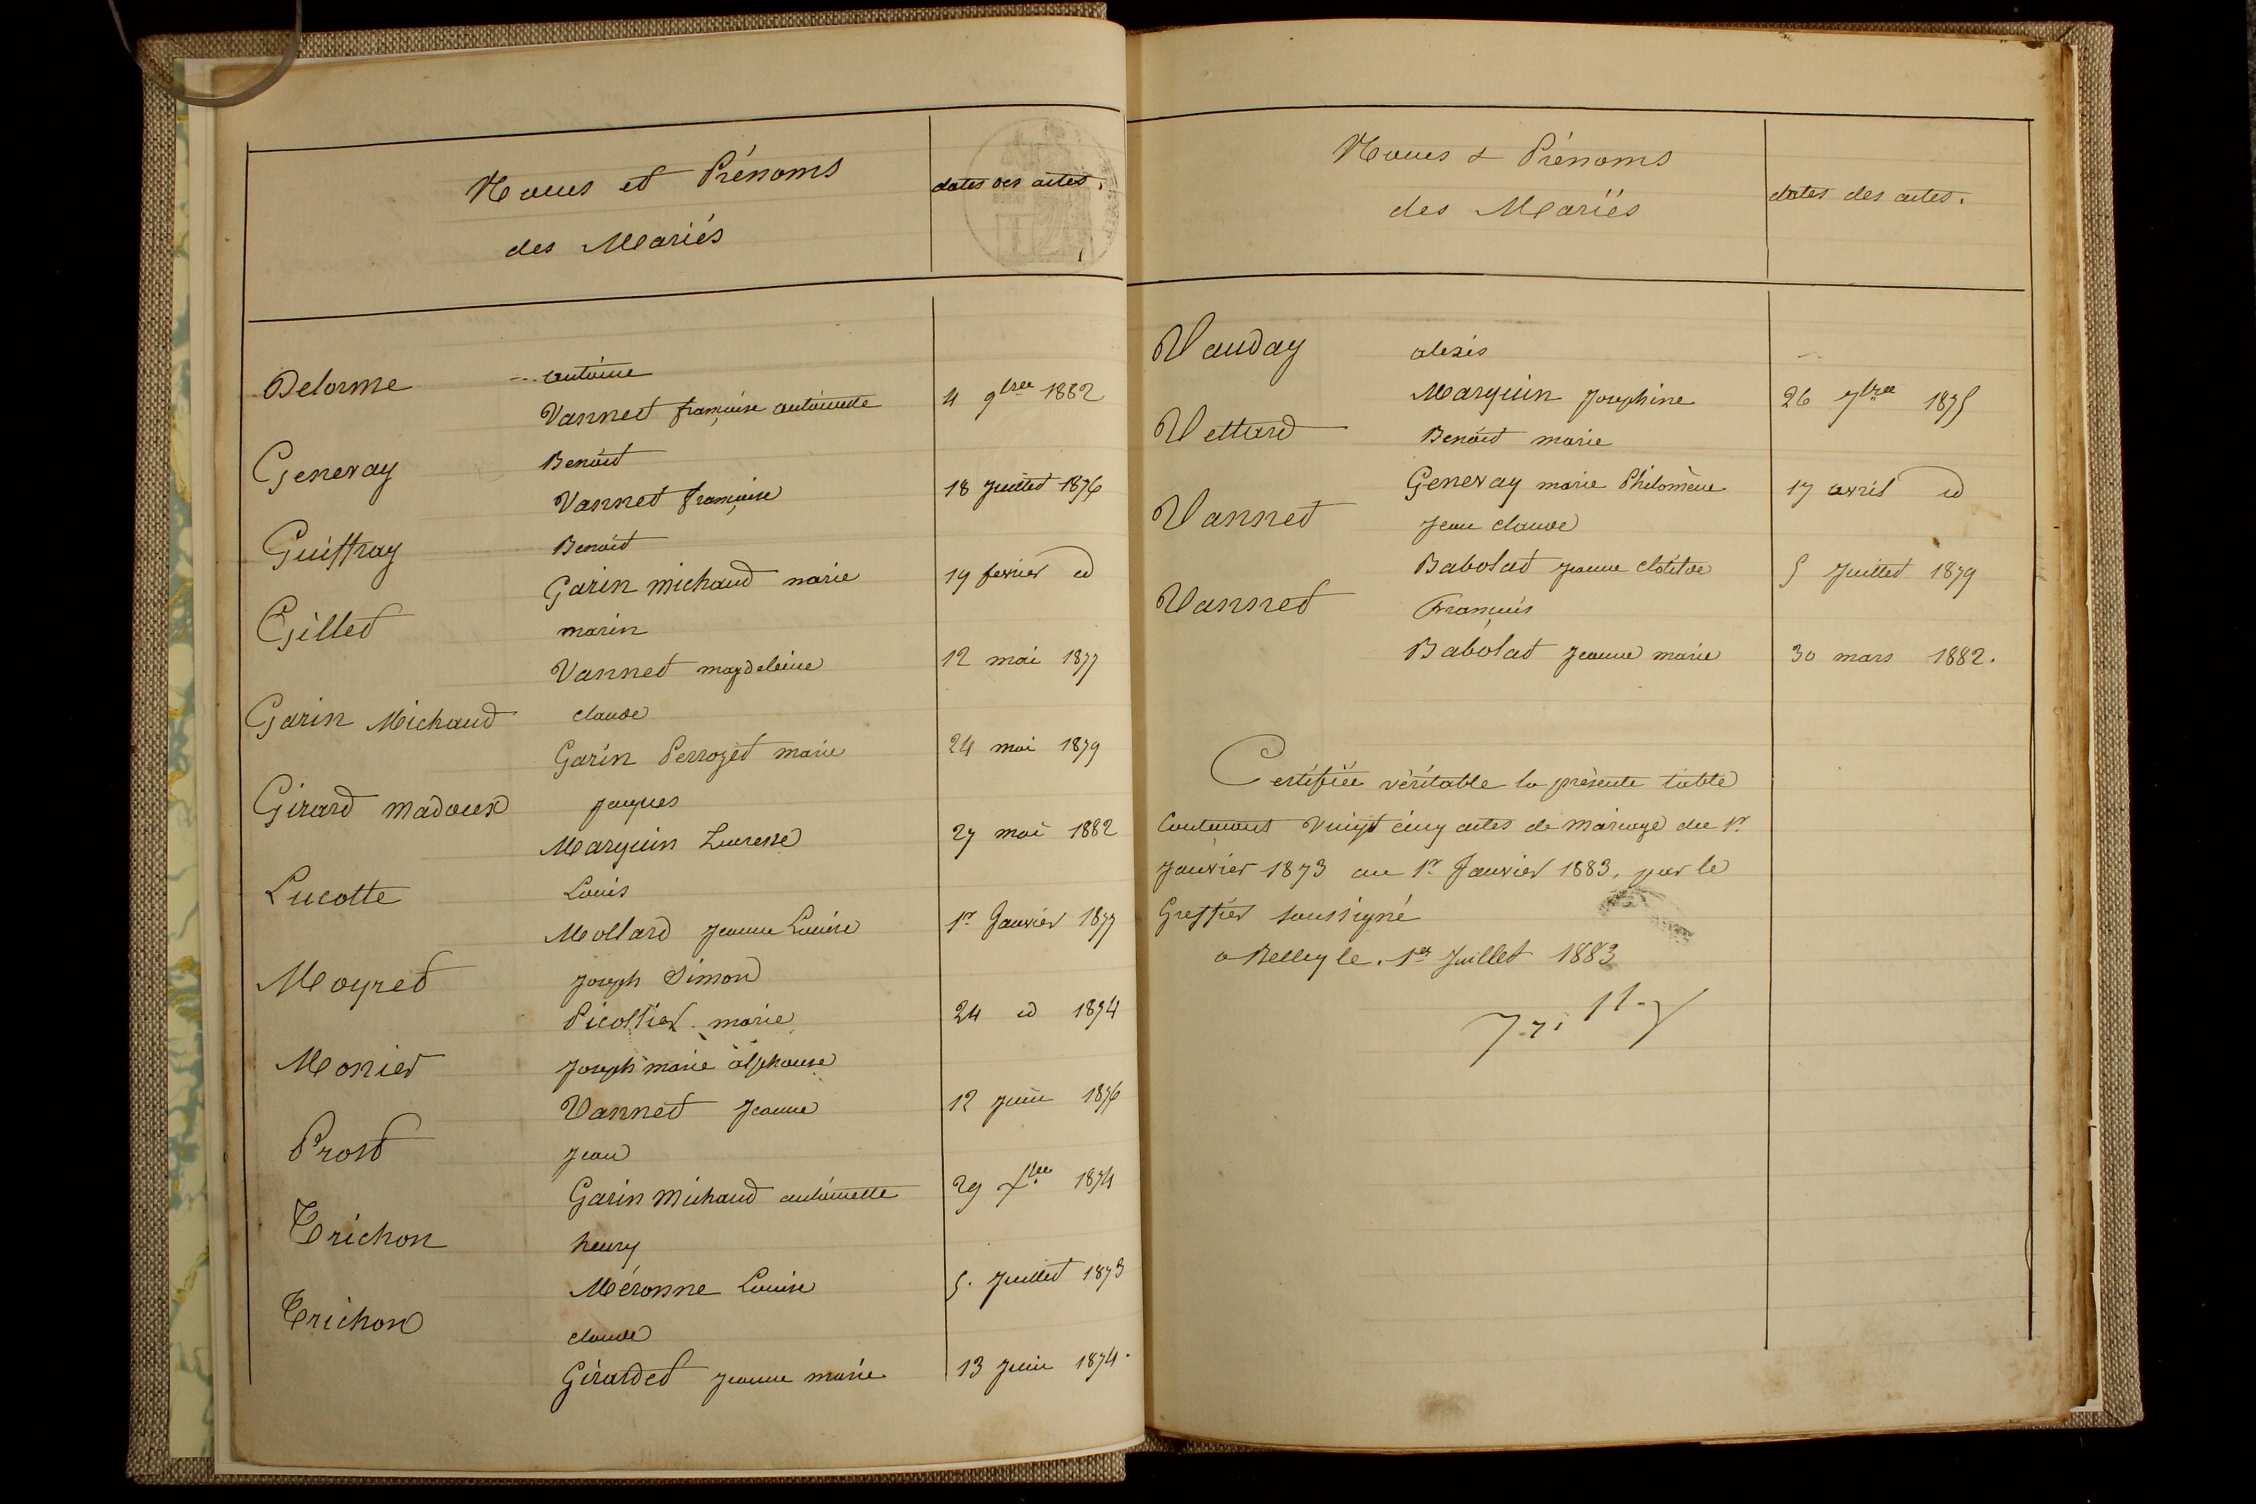 Noms et Prénoms
des Mariés
dates des actes.
Delorme antoine
Vannet françoise antoinette 4 9bre 1882
Genevay Benoit
Vannet françoise 18 juillet 1876
Guiffray Benoit
Garin michaud marie 19 fevrier id
Gillet marin
Vannet magdeleine 12 mai 1877
Garin Michaud claude
Garin Perrozet marie 24 mai 1879
Girard madoux jacques
Marguin Lucresse 27 mai 1882
Lucotte Louis
Mollard jeanne Louise 1er Janvier 1877
Moyret joseph Simon
Picollier marie 24 id 1874
Monier joseph marie alphonse
Vannet jeanne 12 juin 1876
Prost jean
Garin Michaud antoinette 29 xbre 1874
Trichon henry
Méronne Louise 5. juillet 1873
Trichon claude
Girardet jeanne marie 13 juin 1874.
Noms & Prénoms
des Mariés
dates des actes.
Vauday alexis
Marguin josephine 26 7bre 1875
Vettard Benoit marie
Genevay marie Philomène 17 avril id
Vannet jean claude
Babolat jeanne clotilde 5 juillet 1879
Vannet François
Babolat jeanne marie 30 mars 1882.
Certifiée véritable la présente table
contenant vingt cinq actes de mariage du 1er
janvier 1873 au 1er Janvier 1883, par le
Greffier soussigné
a Belley le. 1er juillet 1883